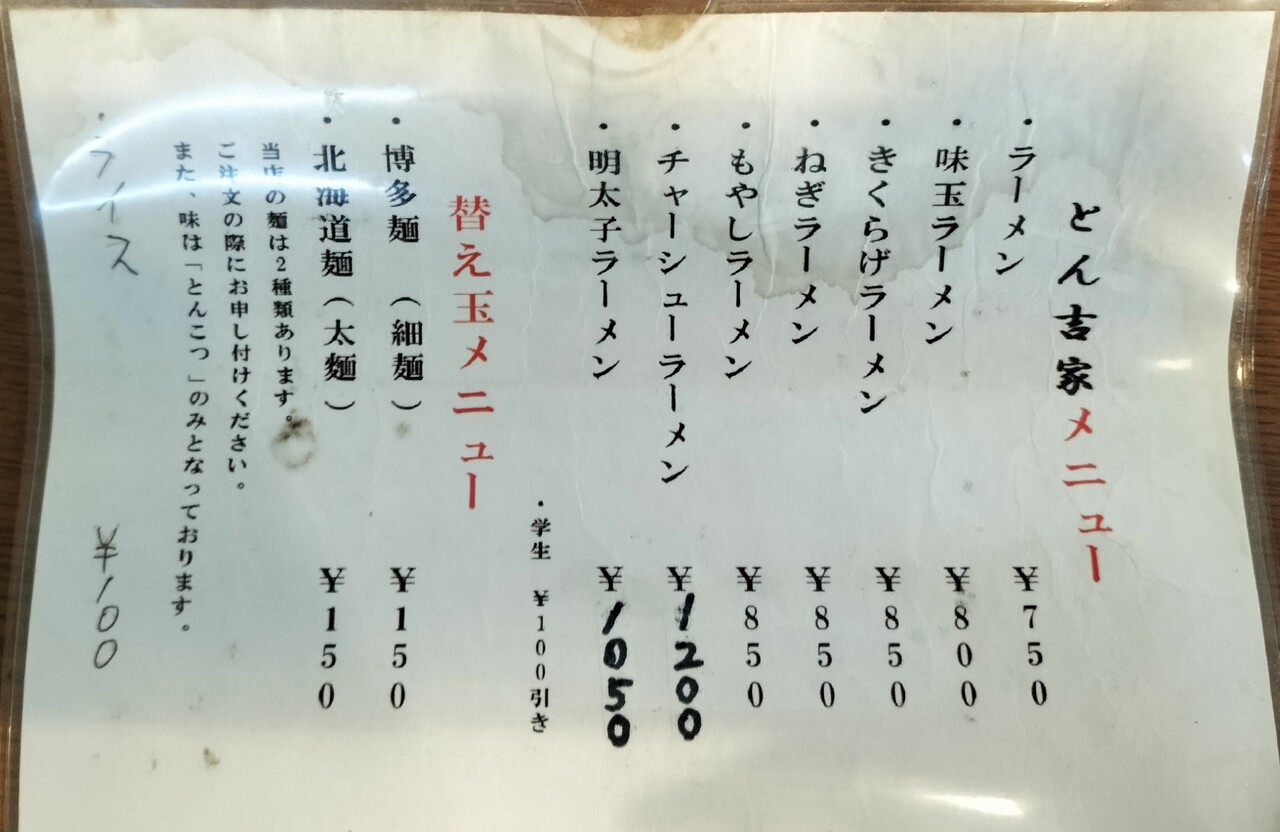 どん吉家メニュー
・ラーメン ¥750
・味玉ラーメン ¥800
・きくらげラーメン ¥850
・ねぎラーメン ¥850
・もやしラーメン ¥850
・チャーシューラーメン ¥1200
・明太子ラーメン ¥1050
・学生 ¥100引き
替え玉メニュー
・博多麺 (細麺) ¥150
・北海道麺(太麺) ¥150
当店の麺は2種類あります。
ご注文の際にお申し付けください。
また、味は「とんこつ」のみとなっております。
・ライス ¥100